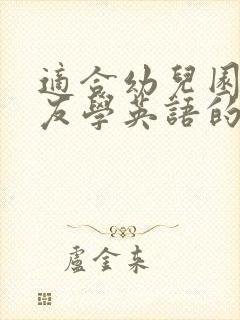 適合幼兒園
友學英語的
盧金來